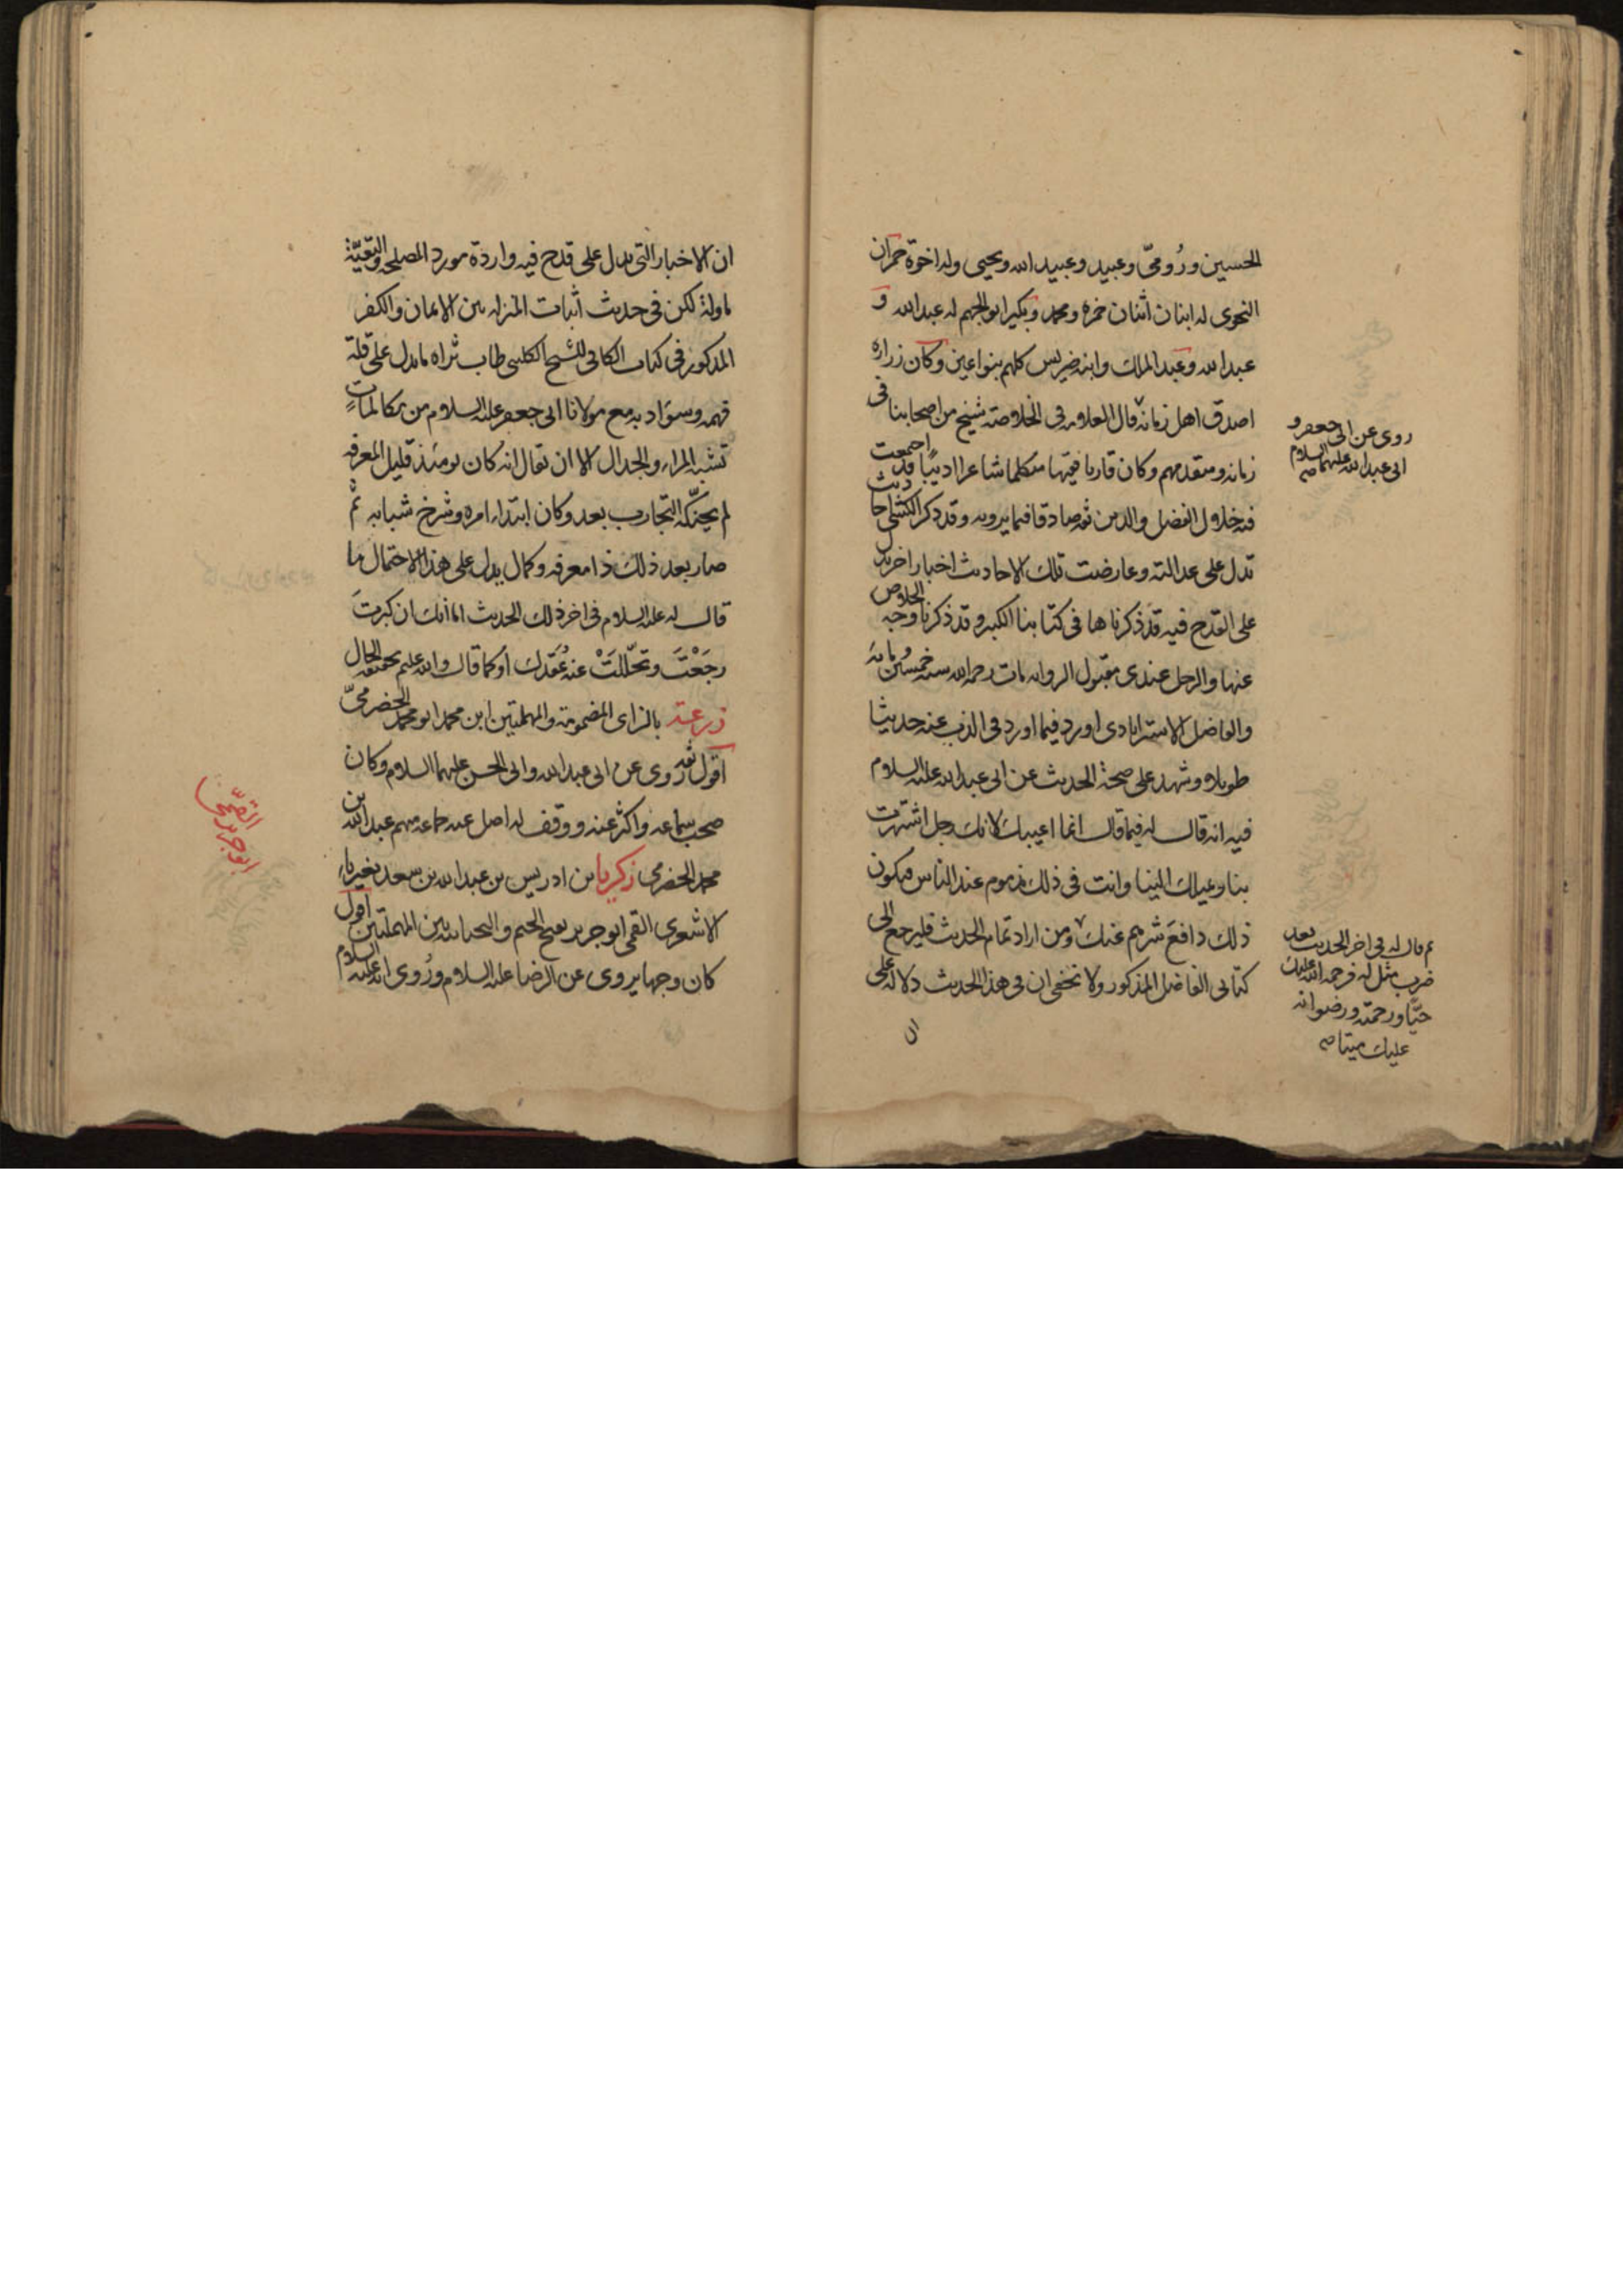 الحسين ورُومىّ وعبيد وعبيد الله ويحيى وله اخوة حمران
النحوى له ابنان اثنان حمزه ومحمد وبكير ابو الجهم له عبد الله و
عبد الله وعبد الملك وابنه ضريس كلهم بنو اعين وكان زراره
اصدق اهل زمانه قال العلامه فى الخلاصة شيخ من اصحابنا فى
زمانه ومتقدمهم وكان قاريا فقيها متكلما شاعرا اديبًا قد اجمعت
فيه خلال الفضل والدين ثقه صادقا فيما يرويه وقد ذكر الكشى احاديث
تدل على عدالته وعارضت تلك الاحاديث اخبار اخر تدل
على القدح فيه قد ذكرناها فى كتابنا الكبير وقد ذكرنا وجه الخلاص
عنها والرجل عندى مقبول الروايه مات رحمه الله سنه خمسين ومائة
والفاضل الاسترابادى اورد فيما اورد فى الذب عنه حديثا
طويلا وشهد على صحة الحديث عن ابى عبد الله عليه السلام
فيه انه قال له فيما قال انما اعيبك لانك رجل اشتهرت
بنا وبميلك الينا وانت فى ذلك مذموم عند الناس فيكون
ذلك دافع شرهم عنك ومن اراد تمام الحديث فليرجع الى
كتابى الفاضل المذكور ولا يخفى ان فى هذا الحديث دلالة على
ان
روى عن ابى جعفر و
ابى عبد الله عليهما السلام صه
ثم قال له فى اخر الحديث بعد
ضرب مثل له فرحمة الله عليك
حيًّا ورحمته ورضوانه
عليك ميتا صه
ان الاخبار التى تدل على قدح فيه واردة مورد المصلحه والتقيّة
ماولة لكن فى حديث اثبات المنزله بين الايمان والكفر
المذكور فى كتاب الكافى للشيخ الكلينى طاب ثراه ما يدل على قلة
فهمه وسوء ادبه مع مولانا ابى جعفر عليه السلام من مكالمات
تشبه المراء والجدال الا ان يقال انه كان يومئذ قليل المعرفه
لم يحنّكه التجارب بعد وكان ابتداء امره وشرخ شبابه ثم
صار بعد ذلك ذا معرفه وكمال يدل على هذا الاحتمال ما
قال له عليه السلام فى اخر ذلك الحديث اما انك ان كبرتَ
رجَعْتَ وتحّللَتْ عنه عُقَدك او كما قال والله عليم بحقيقه الحال
زرعة بالزاى المضمومة والمهملتين ابن محمد ابو محمد الحضرمىّ
اقول ثقه روى عن ابى عبد الله وابى الحسن عليهما السلام وكان
صحب سماعه واكثر عنه ووقف له اصل عنه جماعه منهم عبد الله بن
محمد الحضرمى زكريا بن ادريس بن عبد الله بن سعد بغير ياء
الاشعرى القمى ابو جرير بفتح الجيم والتحتانيه بين المهملتين اقول
كان وجها يروى عن الرضا عليه السلام ورُوى انه عليه السلام
ابو جرير
القمّى